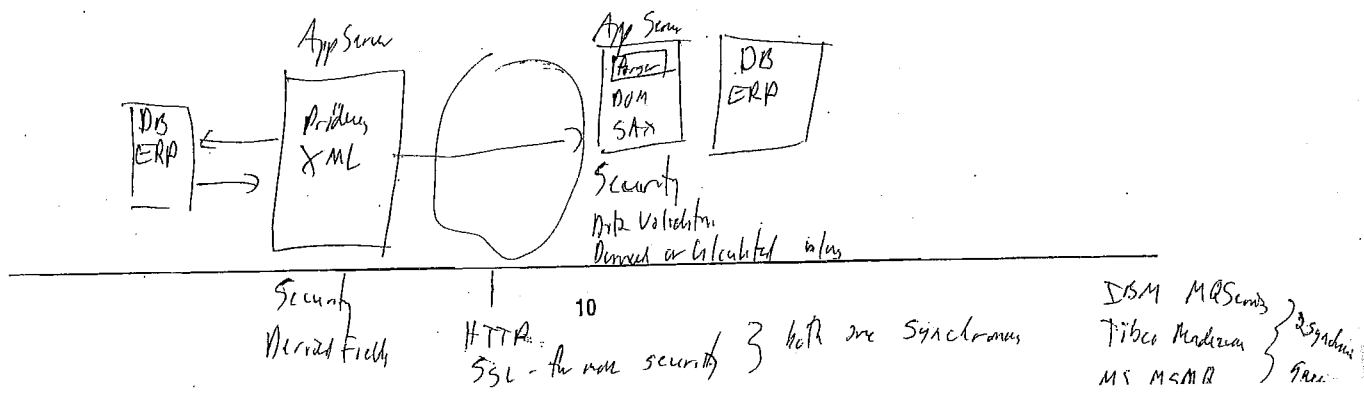 App Server
DB
ERP
XML
App Server
Parser
DOM
SAX
DB
ERP
Security
Data Validation
Derived or Calculated values
Security
Derived Fields
10
HTTP
SSL - for more security } both are Synchronous
IBM MQSeries
Tibco
MS MSMQ